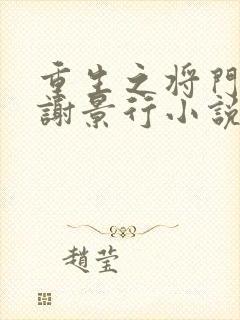 重生之将門
謝景行小説
趙莹